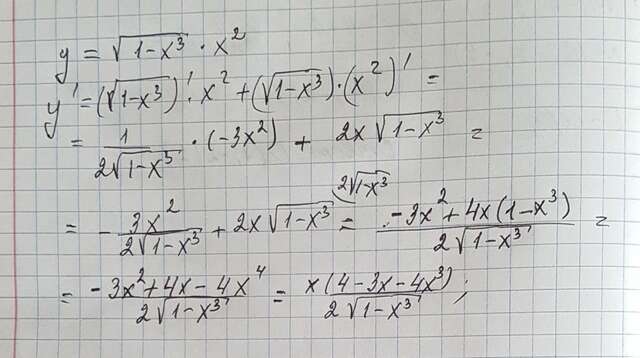 y = √(1-x³) · x²
y' = (√(1-x³))' · x² + (√(1-x³)) · (x²)' =
= 1/(2√(1-x³)) · (-3x²) + 2x√(1-x³) =
= - 3x²/(2√(1-x³)) + 2x√(1-x³) (2√(1-x³) = (-3x² + 4x(1-x³))/(2√(1-x³)) =
= (-3x² + 4x - 4x⁴)/(2√(1-x³)) = x(4-3x-4x³)/(2√(1-x³));